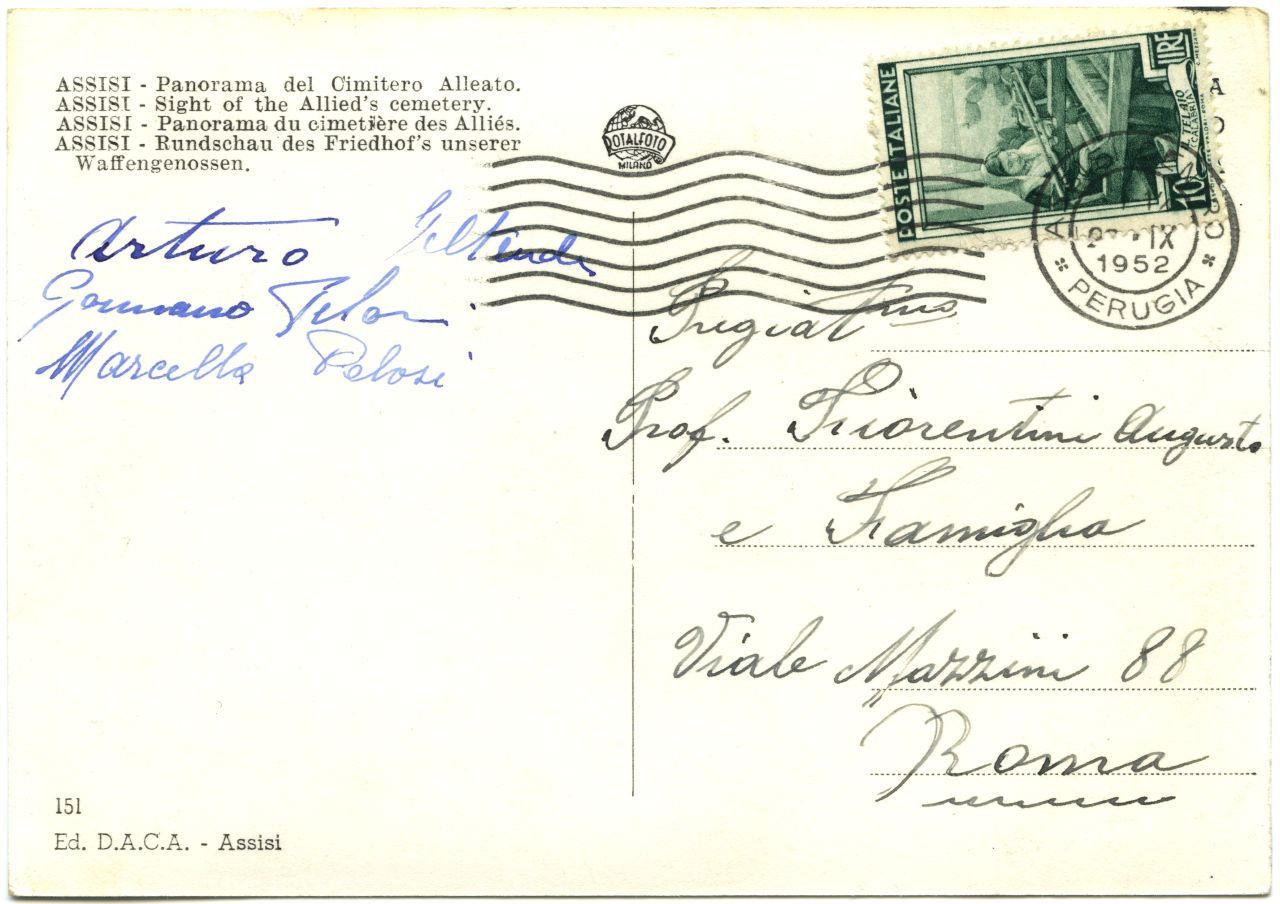 ASSISI - Panorama del Cimitero Alleato.
ASSISI - Sight of the Allied's cemetery.
ASSISI - Panorama du cimetière des Alliés.
ASSISI - Rundschau des Friedhof's unserer
Waffengenossen.
ROTALFOTO
MILANO
POSTE ITALIANE
LIRE
10
IL TELAIO
CALABRIA
IX
1952
PERUGIA
Arturo
Marcella Pelosi
Pregiatmo
Prof. Fiorentini Augusto
e Famiglia
Viale Mazzini 88
Roma
151
Ed. D.A.C.A. - Assisi